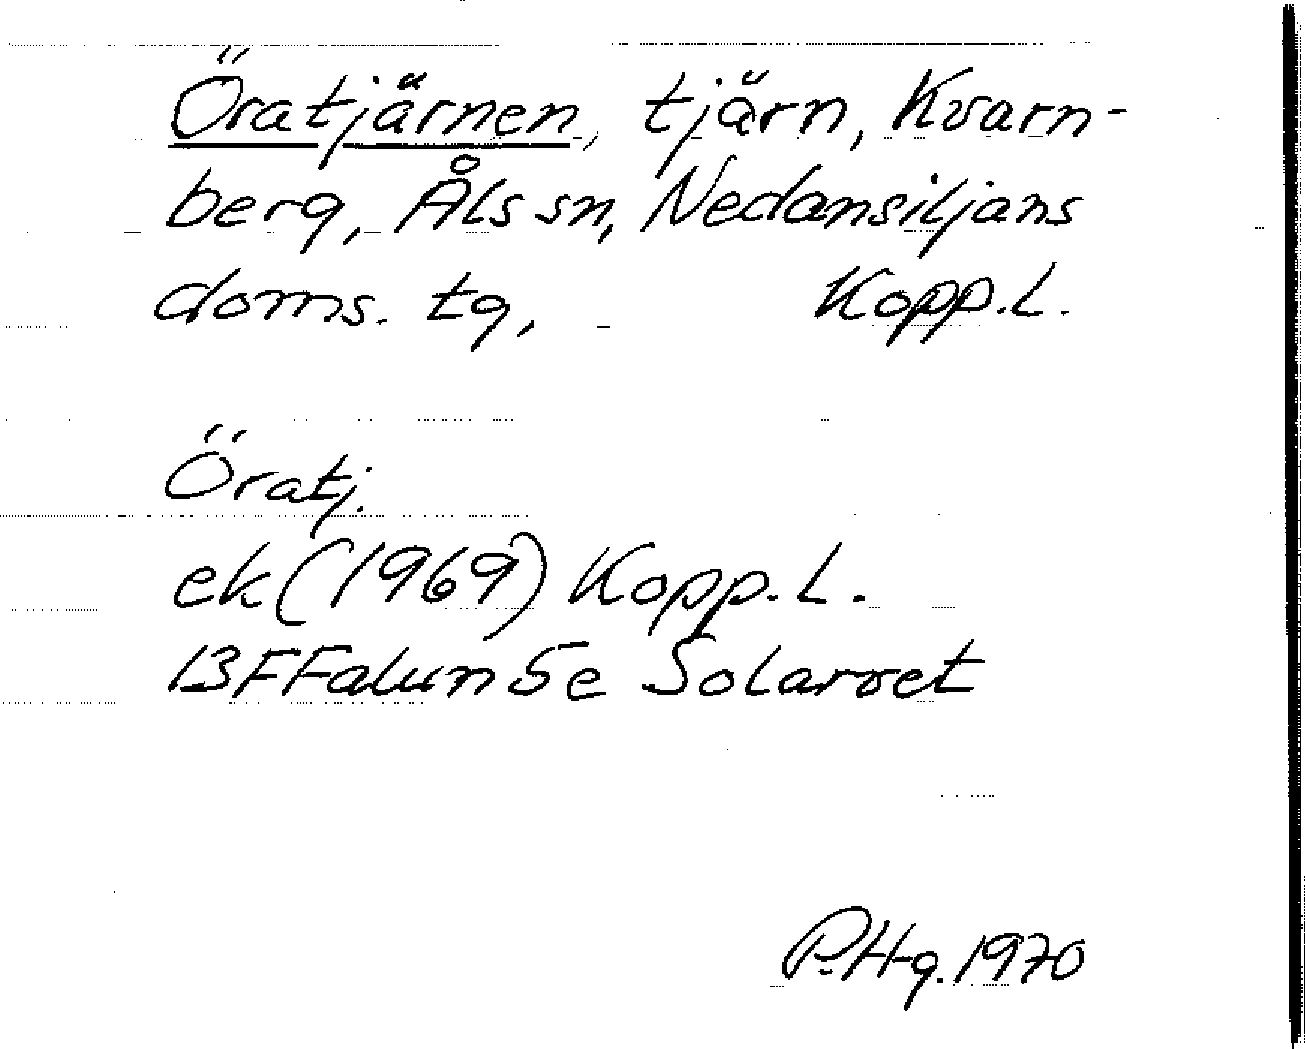 Öratjärnen, tjärn, Kvarn-
berg, Åls sn, Nedansiljans
doms. tg, Kopp.L.
Öratj.
ek (1969) Kopp. L.
13FFalun5e Solarvet
P.Hg. 1970